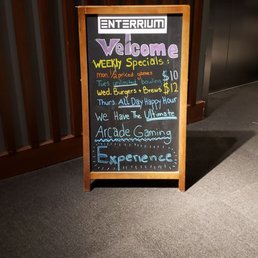 ENTERRIUM
Welcome
WEEKLY Specials:
mon. 1/2 priced games
Tues unlimited bowling $10
Wed. Burgers + Brews $12
Thurs All Day Happy Hour
We Have The Ultimate
Arcade Gaming
Experience